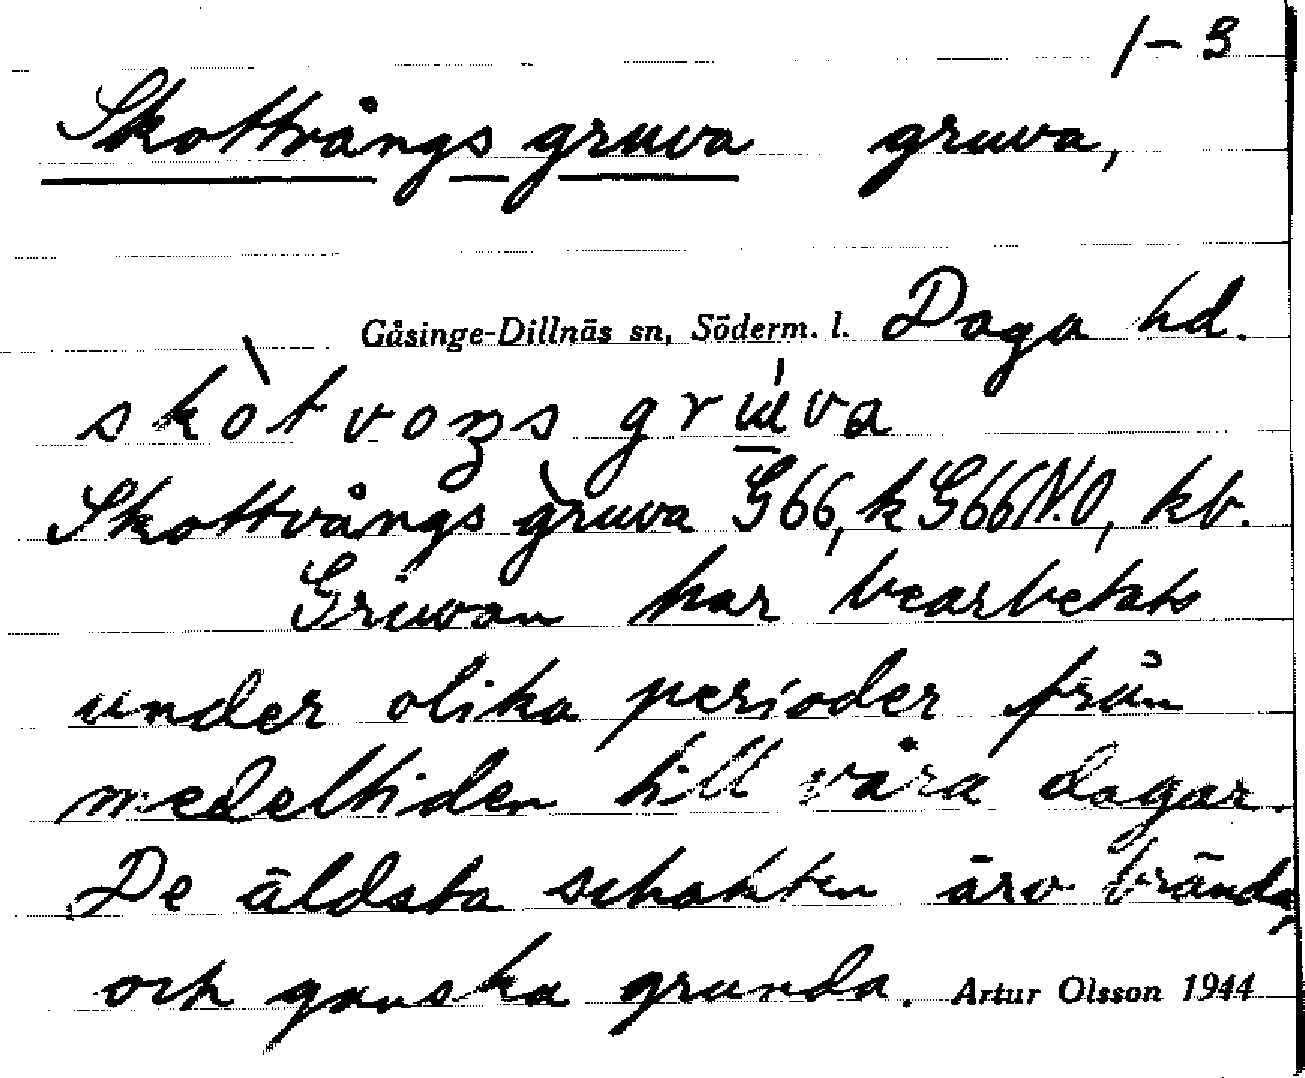 1–3
Skottvångs gruva gruva,
Gåsinge-Dillnäs sn, Söderm. l. Daga hd.
skòtvoŋs grúva
Skottvångs gruva G66, k G66N.O, kb.
Gruvan har bearbetats
under olika perioder från
medeltiden till våra dagar.
De äldsta schakten äro brända,
och ganska grunda. Artur Olsson 1944